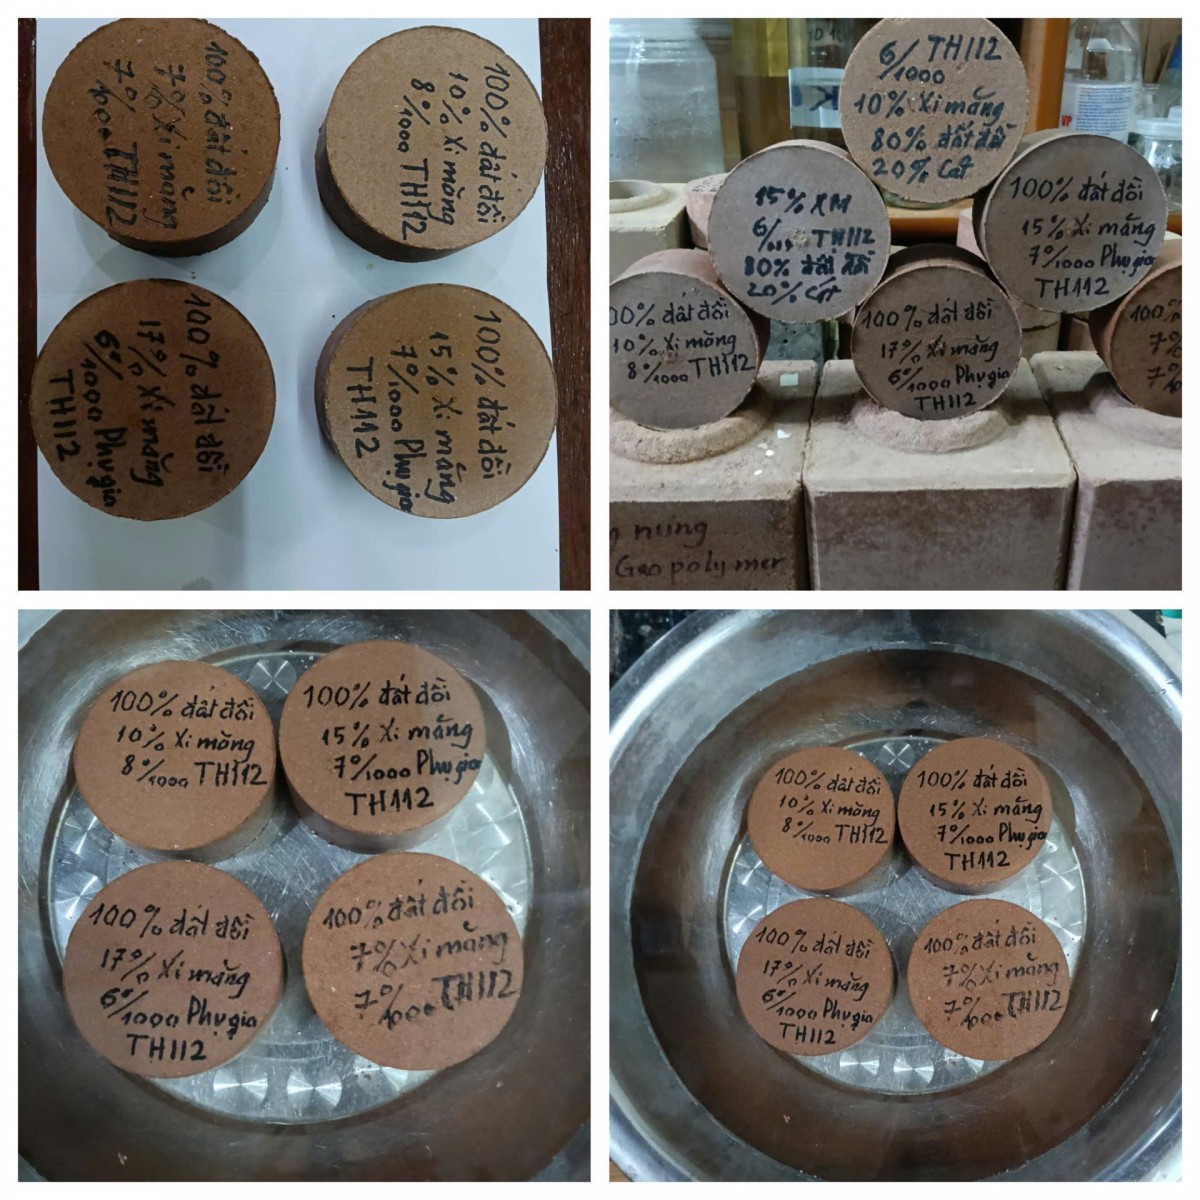 100% đất đồi
7% Xi măng
7%/1000 TH112
100% đất đồi
10% Xi măng
8%/1000 TH112
100% đất đồi
17% Xi măng
6%/1000 Phụ gia
TH112
100% đất đồi
15% Xi măng
7%/1000 Phụ gia
TH112
6/1000 TH112
10% Xi măng
80% đất đồi
20% Cát
15% XM
6/000 TH112
80% đất đồi
20% Cát
100% đất đồi
15% Xi măng
7%/1000 Phụ gia
TH112
00% đất đồi
10% Xi măng
8%/1000 TH112
100% đất đồi
17% Xi măng
6%/1000 Phụ gia
TH112
100%
7%
7%
nung
Geopolymer
100% đất đồi
10% Xi măng
8%/1000 TH112
100% đất đồi
15% Xi măng
7%/1000 Phụ gia
TH112
100% đất đồi
17% Xi măng
6%/1000 Phụ gia
TH112
100% đất đồi
7% Xi măng
7%/1000 TH112
100% đất đồi
10% Xi măng
8%/1000 TH112
100% đất đồi
15% Xi măng
7%/1000 Phụ gia
TH112
100% đất đồi
17% Xi măng
6%/1000 Phụ gia
TH112
100% đất đồi
7% Xi măng
7%/1000 TH112